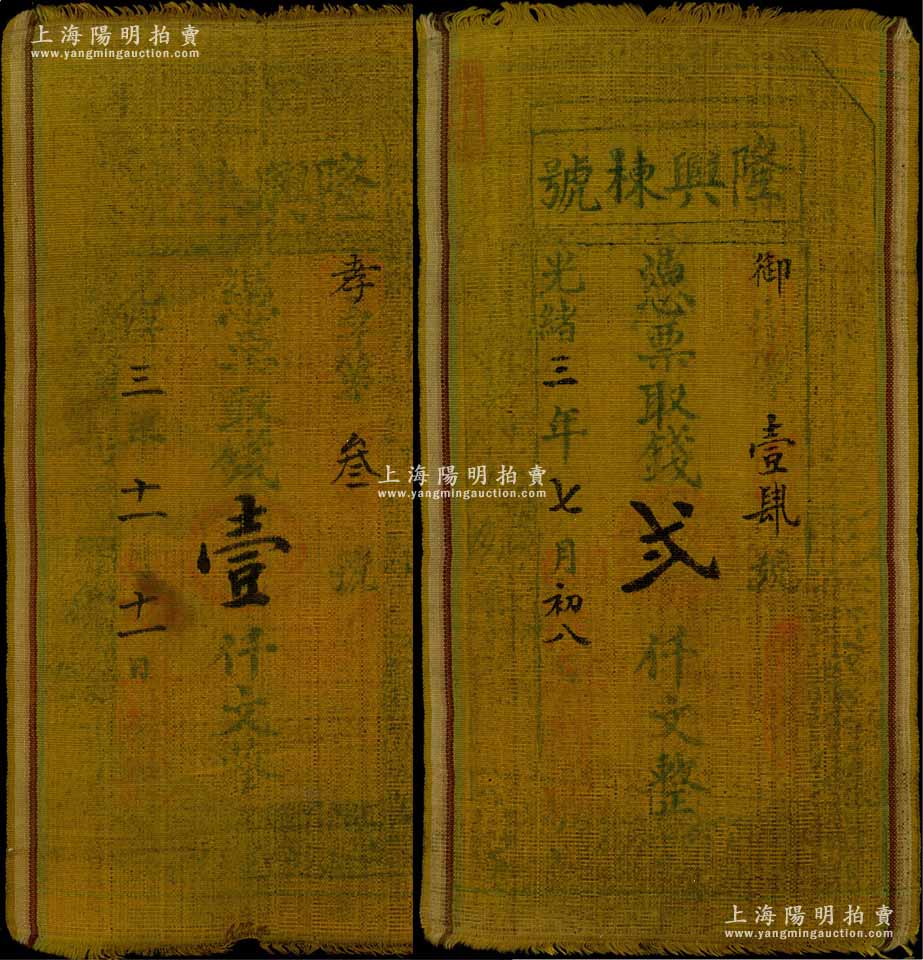 上海陽明拍賣
www.yangmingauction.com
隆興
孝字第叁號
憑票取錢壹仟文整
光緒三年十一月十一日
隆興棟號
御
壹肆號
憑票取錢弍仟文整
光緒三年七月初八
上海陽明拍賣
www.yangmingauction.com
上海陽明拍賣
www.yangmingauction.com